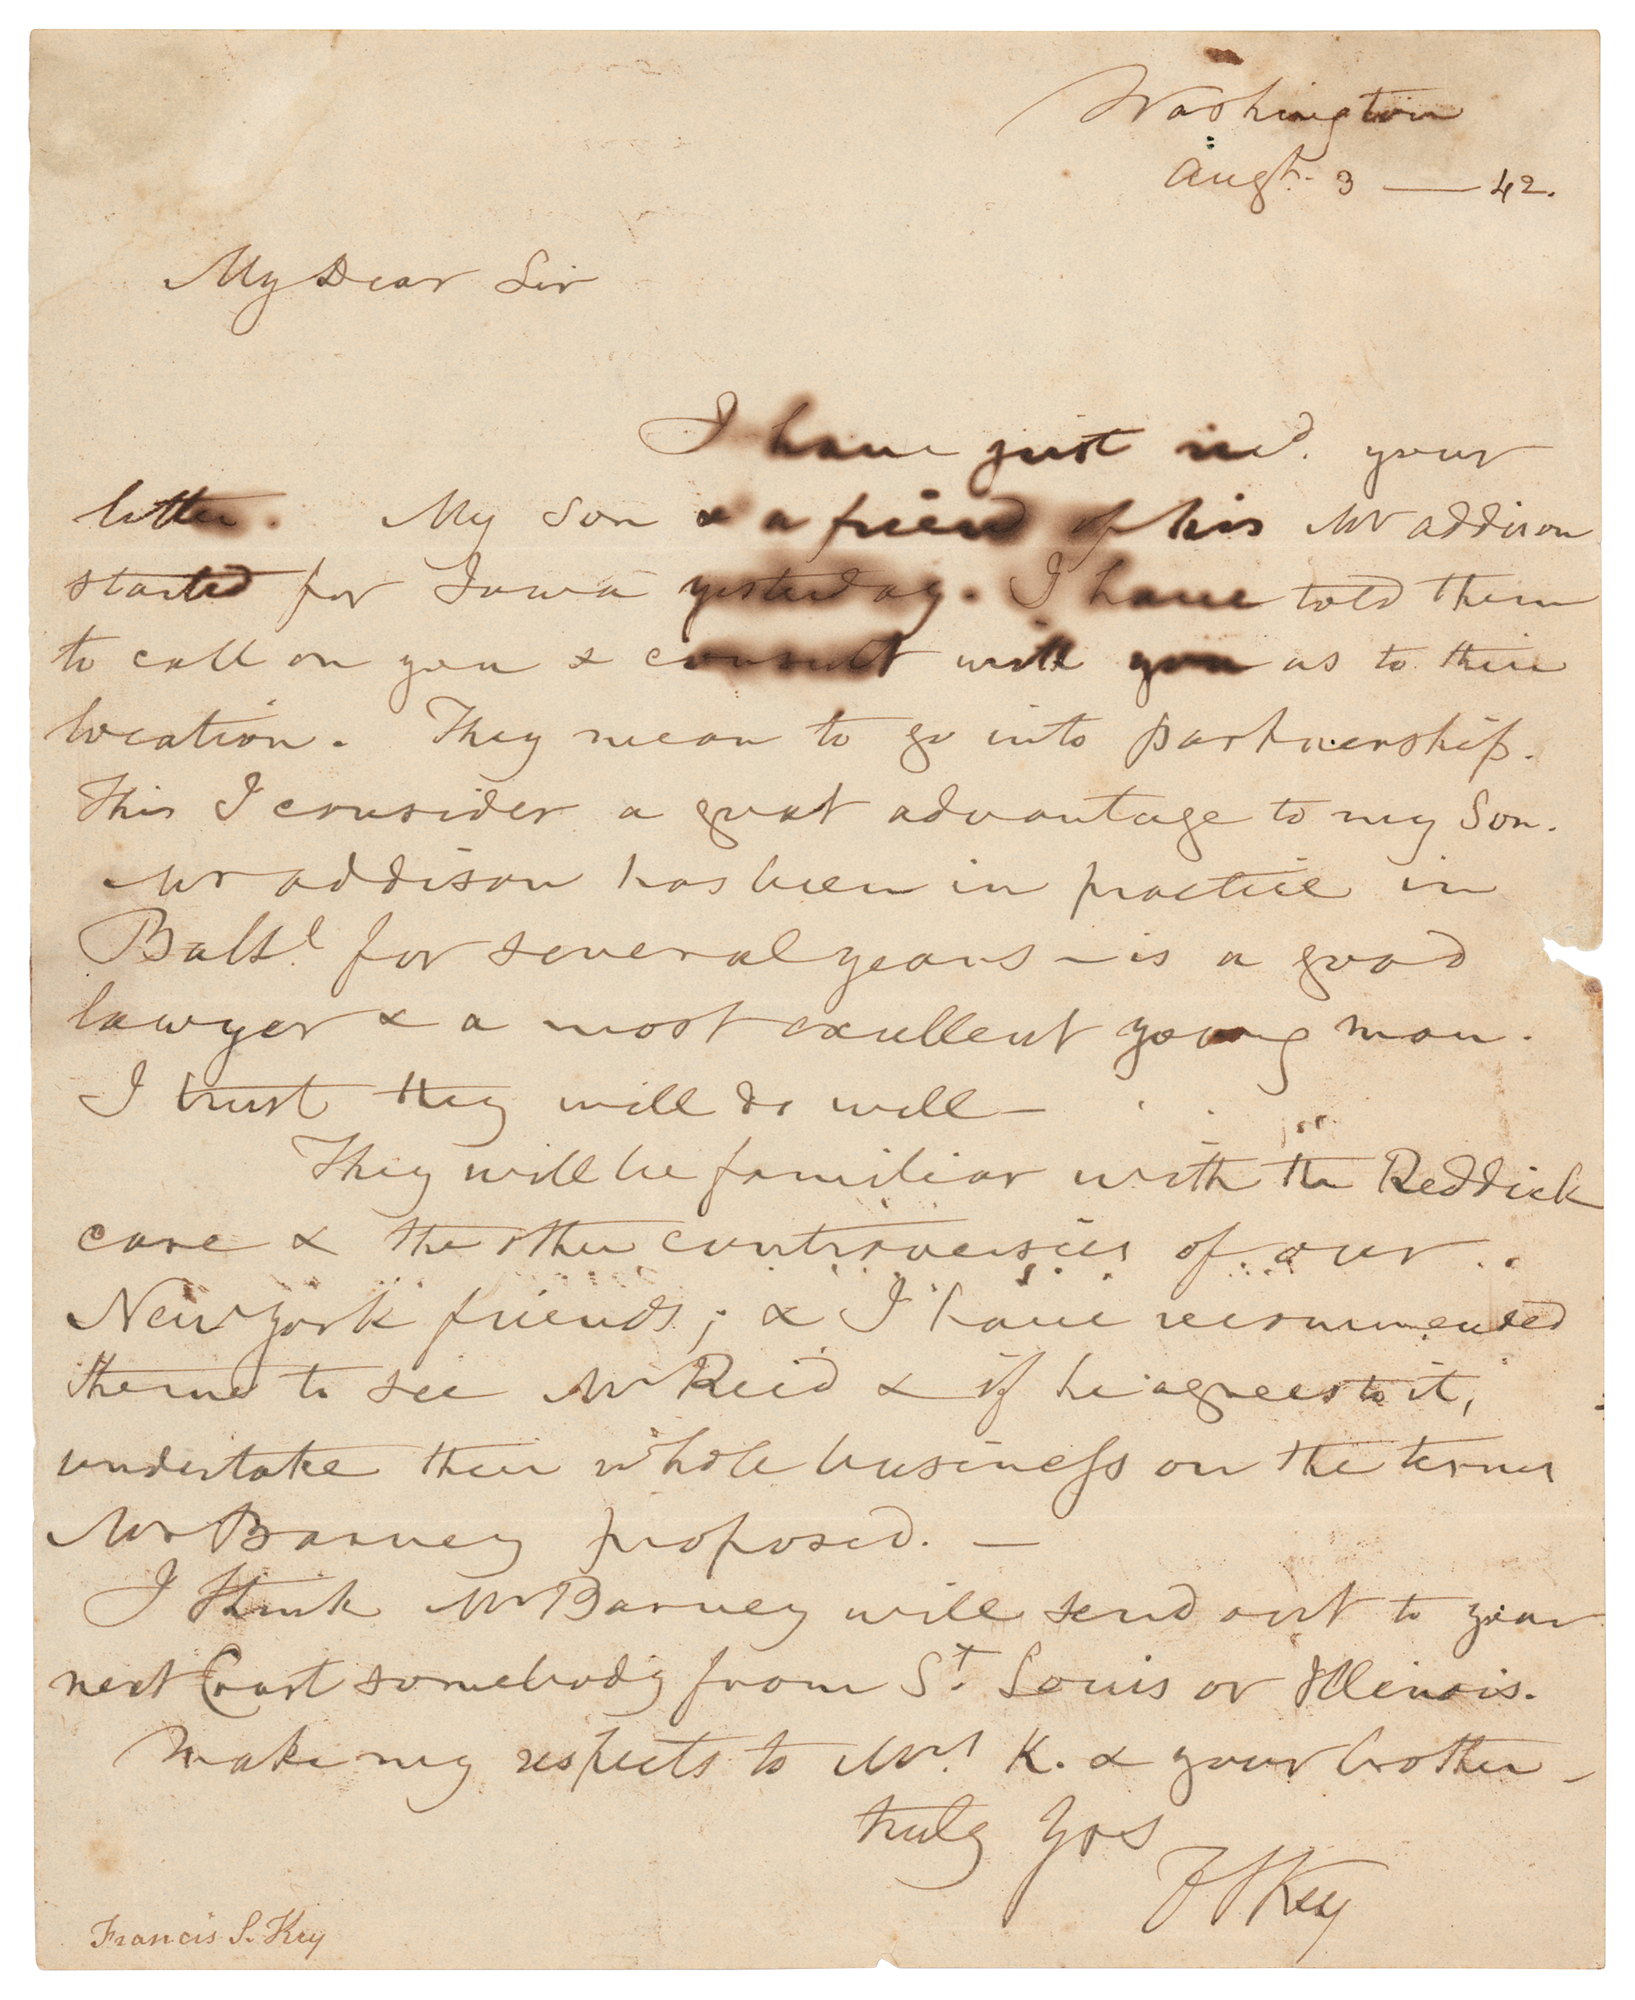 Washington
Augt. 3 — 42.
My Dear Sir
I have just recd. your
letter. My Son & a friend of his Mr Addison
started for Iowa yesterday. I have told them
to call on you & consult with you as to their
location. They mean to go into partnership.
This I consider a great advantage to my Son.
Mr Addison has been in practice in
Balte. for several years – is a good
lawyer & a most excellent young man.
I trust they will do well –
They will be familiar with the Reddick
case & the other controversies of our
New York friends; & I have recommended
them to see Mr Reid & if he agrees to it,
undertake their whole business on the terms
Mr Barney proposed. —
I think Mr Barney will send out to your
next Court somebody from St. Louis or Illinois.
Make my respects to Mrs. K. & your brother –
truly Yrs
F S Key
Francis S. Key